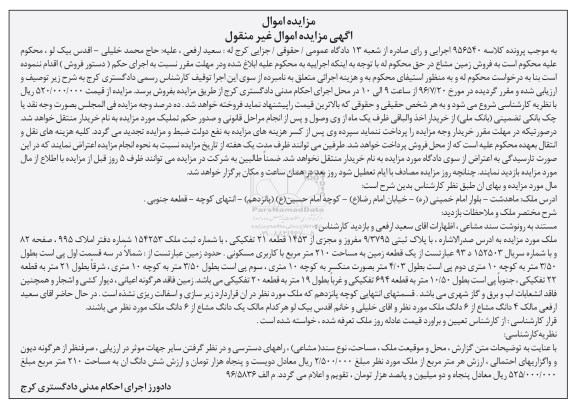 مزایده اموال
آگهی مزایده اموال غیر منقول
به موجب پرونده کلاسه ۹۵۶۵۴۰ اجرایی و رای صادره از شعبه ۱۳ دادگاه عمومی / حقوقی / جزایی کرج له : سعید ارفعی ، علیه: حاج محمد خلیلی – اقدس بیک لو ، محکوم
علیه محکوم است به فروش زمین مشاع در حق محکوم له با توجه به اینکه اجراییه به محکوم علیه ابلاغ شده ودر مهلت مقرر نسبت به اجرای حکم ( دستور فروش ) اقدام ننموده
است بنا به درخواست محکوم له و به منظور استیفای محکوم به و هزینه اجرائی متعلق به نامبرده از سوی این اجرا توقیف کارشناس رسمی دادگستری کرج به شرح زیر توصیف و
ارزیابی شده و مقرر گردیده در مورخ ۹۶/۷/۲۰ از ساعت ۹ الی ۱۰ در محل اجرای احکام مدنی دادگستری کرج از طریق مزایده بفروش برسد. مزایده از قیمت ۵۲۰/۰۰۰/۰۰۰ ریال
با نظریه کارشناسی شروع می شود و به هر شخص حقیقی و حقوقی که بالاترین قیمت راپیشنهاد نماید فروخته خواهد شد. ده درصد وجه مزایده فی المجلس بصورت وجه نقد یا
چک بانکی تضمینی (بانک ملی) از خریدار اخذ والباقی ظرف یک ماه از وی وصول و پس از انجام مراحل قانونی و صدور حکم تملیک مورد مزایده به نام خریدار منتقل خواهد شد.
درصورتیکه در مهلت مقرر خریدار وجه مزایده را پرداخت ننماید سپرده وی پس از کسر هزینه های مزایده به نفع دولت ضبط و مزایده تجدید می گردد. کلیه هزینه های نقل و
انتقال بعهده محکوم علیه است که از محل فروش پرداخت خواهد شد. طرفین می توانند ظرف مدت یک هفته از تاریخ مزایده نسبت به نحوه انجام مزایده اعتراض نمایند که در این
صورت تارسیدگی به اعتراض از سوی دادگاه مورد مزایده به نام خریدار منتقل نخواهد شد. ضمناً طالبین به شرکت در مزایده می توانند ظرف ۵ روز قبل از مزایده با اطلاع از مال
مورد مزایده بازدید نمایند. چنانچه روز مزایده مصادف با ایام تعطیل شود روز بعد در همان ساعت و مکان برگزار خواهد شد.
مال مورد مزایده و بهای ان طبق نظر کارشناس بدین شرح است:
ادرس ملک: ماهدشت – بلوار امام خمینی (ره) – خیابان امام رضا(ع) – کوچه امام حسین(ع) (پانزدهم) – انتهای کوچه – قطعه جنوبی .
شرح مختصر ملک و ملاحظات بازدید:
مستند به رونوشت سند مشاعی ، اظهارات اقای سعید ارفعی و بازدید کارشناس
ملک مورد مزایده به ادرس صدرالاشاره ، با پلاک ثبتی ۹/۳۷۹۵ مفروز و مجزی از ۱۴۵۳ قطعه ۲۱ تفکیکی ، با شماره ثبت ملک ۱۵۴۲۵۳ شماره دفتر املاک ۹۹۵ ، صفحه ۸۲
و با شماره سریال ۱۵۲۵۰۳ د ۹۳ عبارتست از یک قطعه زمین به مساحت ۲۱۰ متر مربع با کاربری مسکونی . حدود زمین عبارتست از : شمالاً در سه قسمت اول پی است بطول
۳/۵۰ متر به کوچه ۱۰ متری دوم پی است بطول ۴/۰۳ متر بصورت منکسر به کوچه ۱۰ متری ، سوم پی است بطول ۳/۵۰ متر به کوچه ۱۰ متری ، شرقا بطول ۲۱ متر به قطعه
۲۲ تفکیکی ، جنوباً پی است بطول ۱۰/۵۰ متر به قطعه ۶۹۴ تفکیکی و غرباً بطول ۱۹ متر به قطعه ۲۰ تفکیکی می باشد. زمین فاقد هرگونه اعیانی ، دیوار کشی و اشجار و همچنین
فاقد انشعابات اب و برق و گاز شهری می باشد . قسمتهای انتهایی کوچه پانزدهم که ملک مورد نظر در ان قراردارد زیر سازی و اسفالت ریزی نشده است . در حال حاضر اقای سعید
ارفعی مالک ۴ دانگ مشاع از ۶ دانگ ملک مورد نظر و اقای خلیلی و خانم اقدس بیک لو هر کدام مالک یک دانگ مشاع از ۶ دانگ ملک مورد نظر می باشند.
قرار کارشناسی : از کارشناس تعیین و براورد قیمت عادله روز ملک تعرفه شده ، خواسته شده است .
نظریه کارشناسی:
با عنایت به توضیحات متن گزارش ، محل و موقعیت ملک ، مساحت، نوع سند( مشاعی) ، راههای دسترسی و در نظر گرفتن سایر جهات موثر در ارزیابی ، صرفنظر از هرگونه دیون
و واگزاریهای احتمالی ، ارزش هر متر مربع از ملک مورد نظر مبلغ ۲/۵۰۰/۰۰۰ ریال معادل دویست و پنجاه هزار تومان و ارزش شش دانگ ان به مساحت ۲۱۰ متر مربع مبلغ
۵۲۵/۰۰۰/۰۰۰ ریال معادل پنجاه و دو میلیون و پانصد هزار تومان ، تقویم و اعلام می گردد. م الف ۹۶/۵۸۳۶
دادورز اجرای احکام مدنی دادگستری کرج